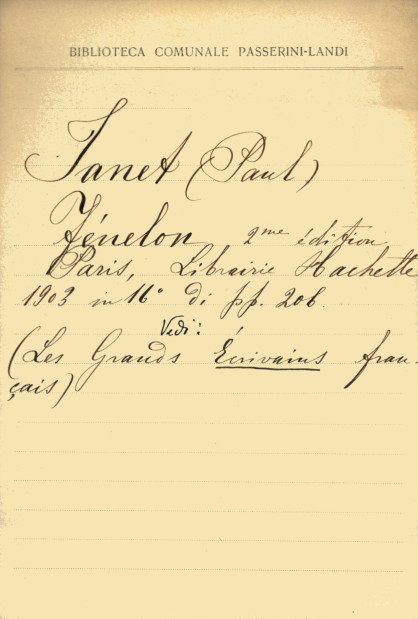 BIBLIOTECA COMUNALE PASSERINI-LANDI
Janet (Paul)
Fénelon 2me édition
Paris, Librairie Hachette
1903 in 16° di pp. 206.
Vedi:
(Les Grands Écrivains fran-
çais)